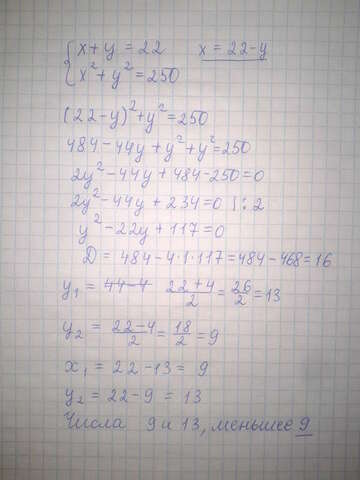 x+y = 22 x = 22-y
x²+y² = 250
(22-y)²+y² = 250
484-44y+y²+y²=250
2y²-44y+484-250=0
2y²-44y+234=0 |:2
y²-22y+117=0
D = 484-4·1·117=484-468=16
y₁ = 44-4 22+4/2 = 26/2 = 13
y₂ = 22-4/2 = 18/2 = 9
x₁ = 22-13 = 9
y₂ = 22-9 = 13
Числа 9 и 13, меньшее 9